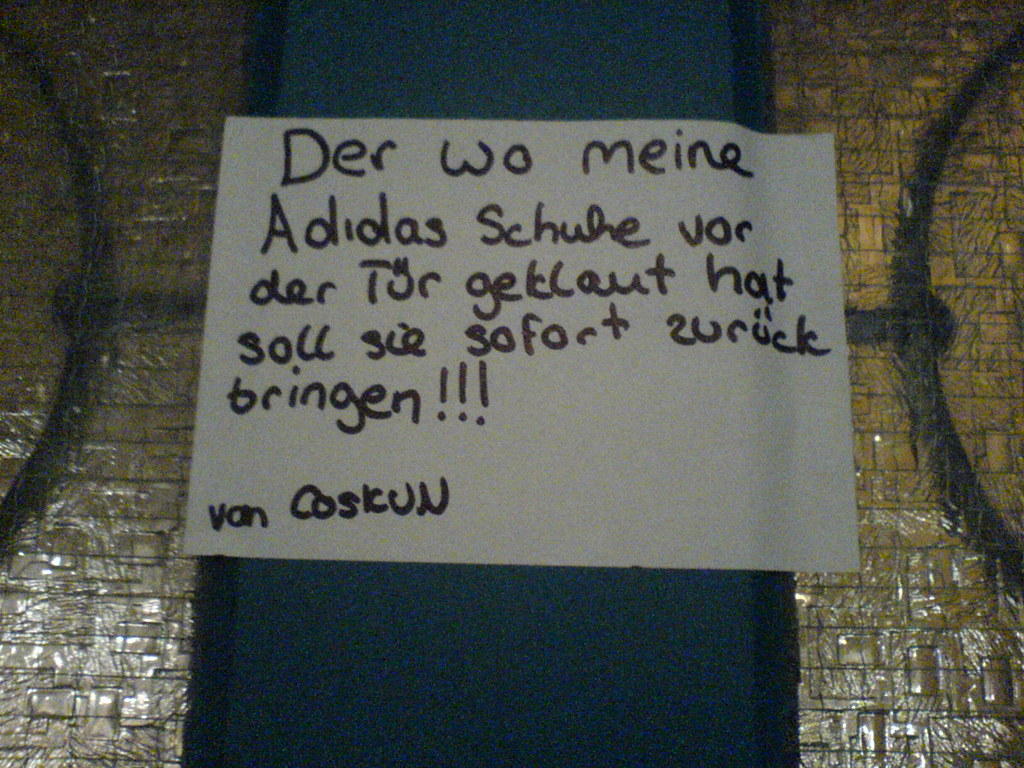 Der wo meine
Adidas Schuhe vor
der Tür geklaut hat
soll sie sofort zurück
bringen!!!
von COSKUN